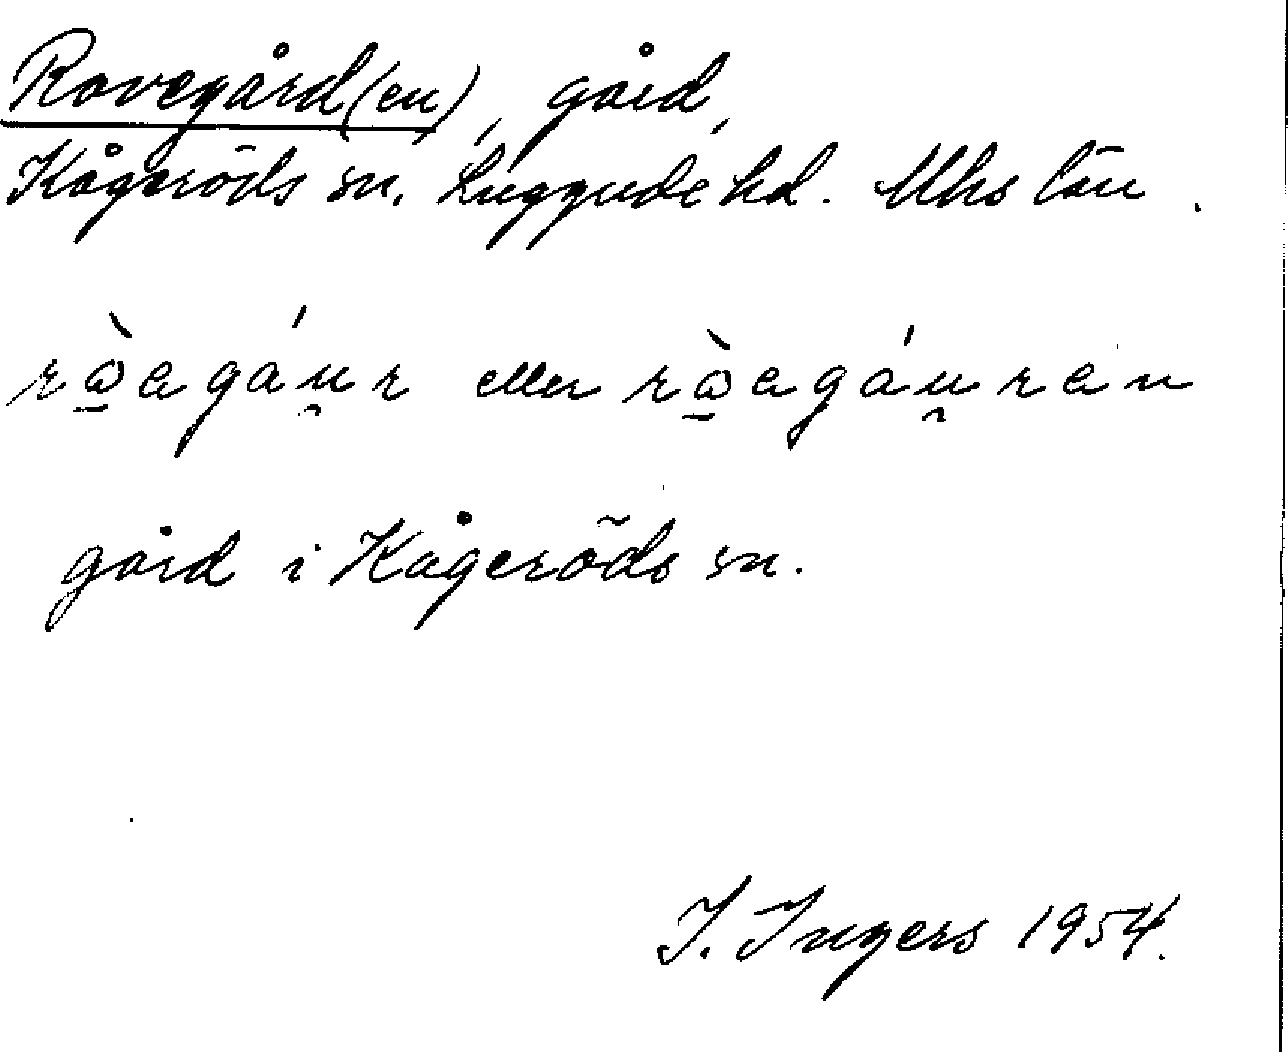 Rovegård(en), gård,
Kågeröds sn. Luggude hd. Mhs län.
rò̲egáu̯r eller rò̲egáu̯ren
gård i Kågeröds sn.
I. Ingers 1954.